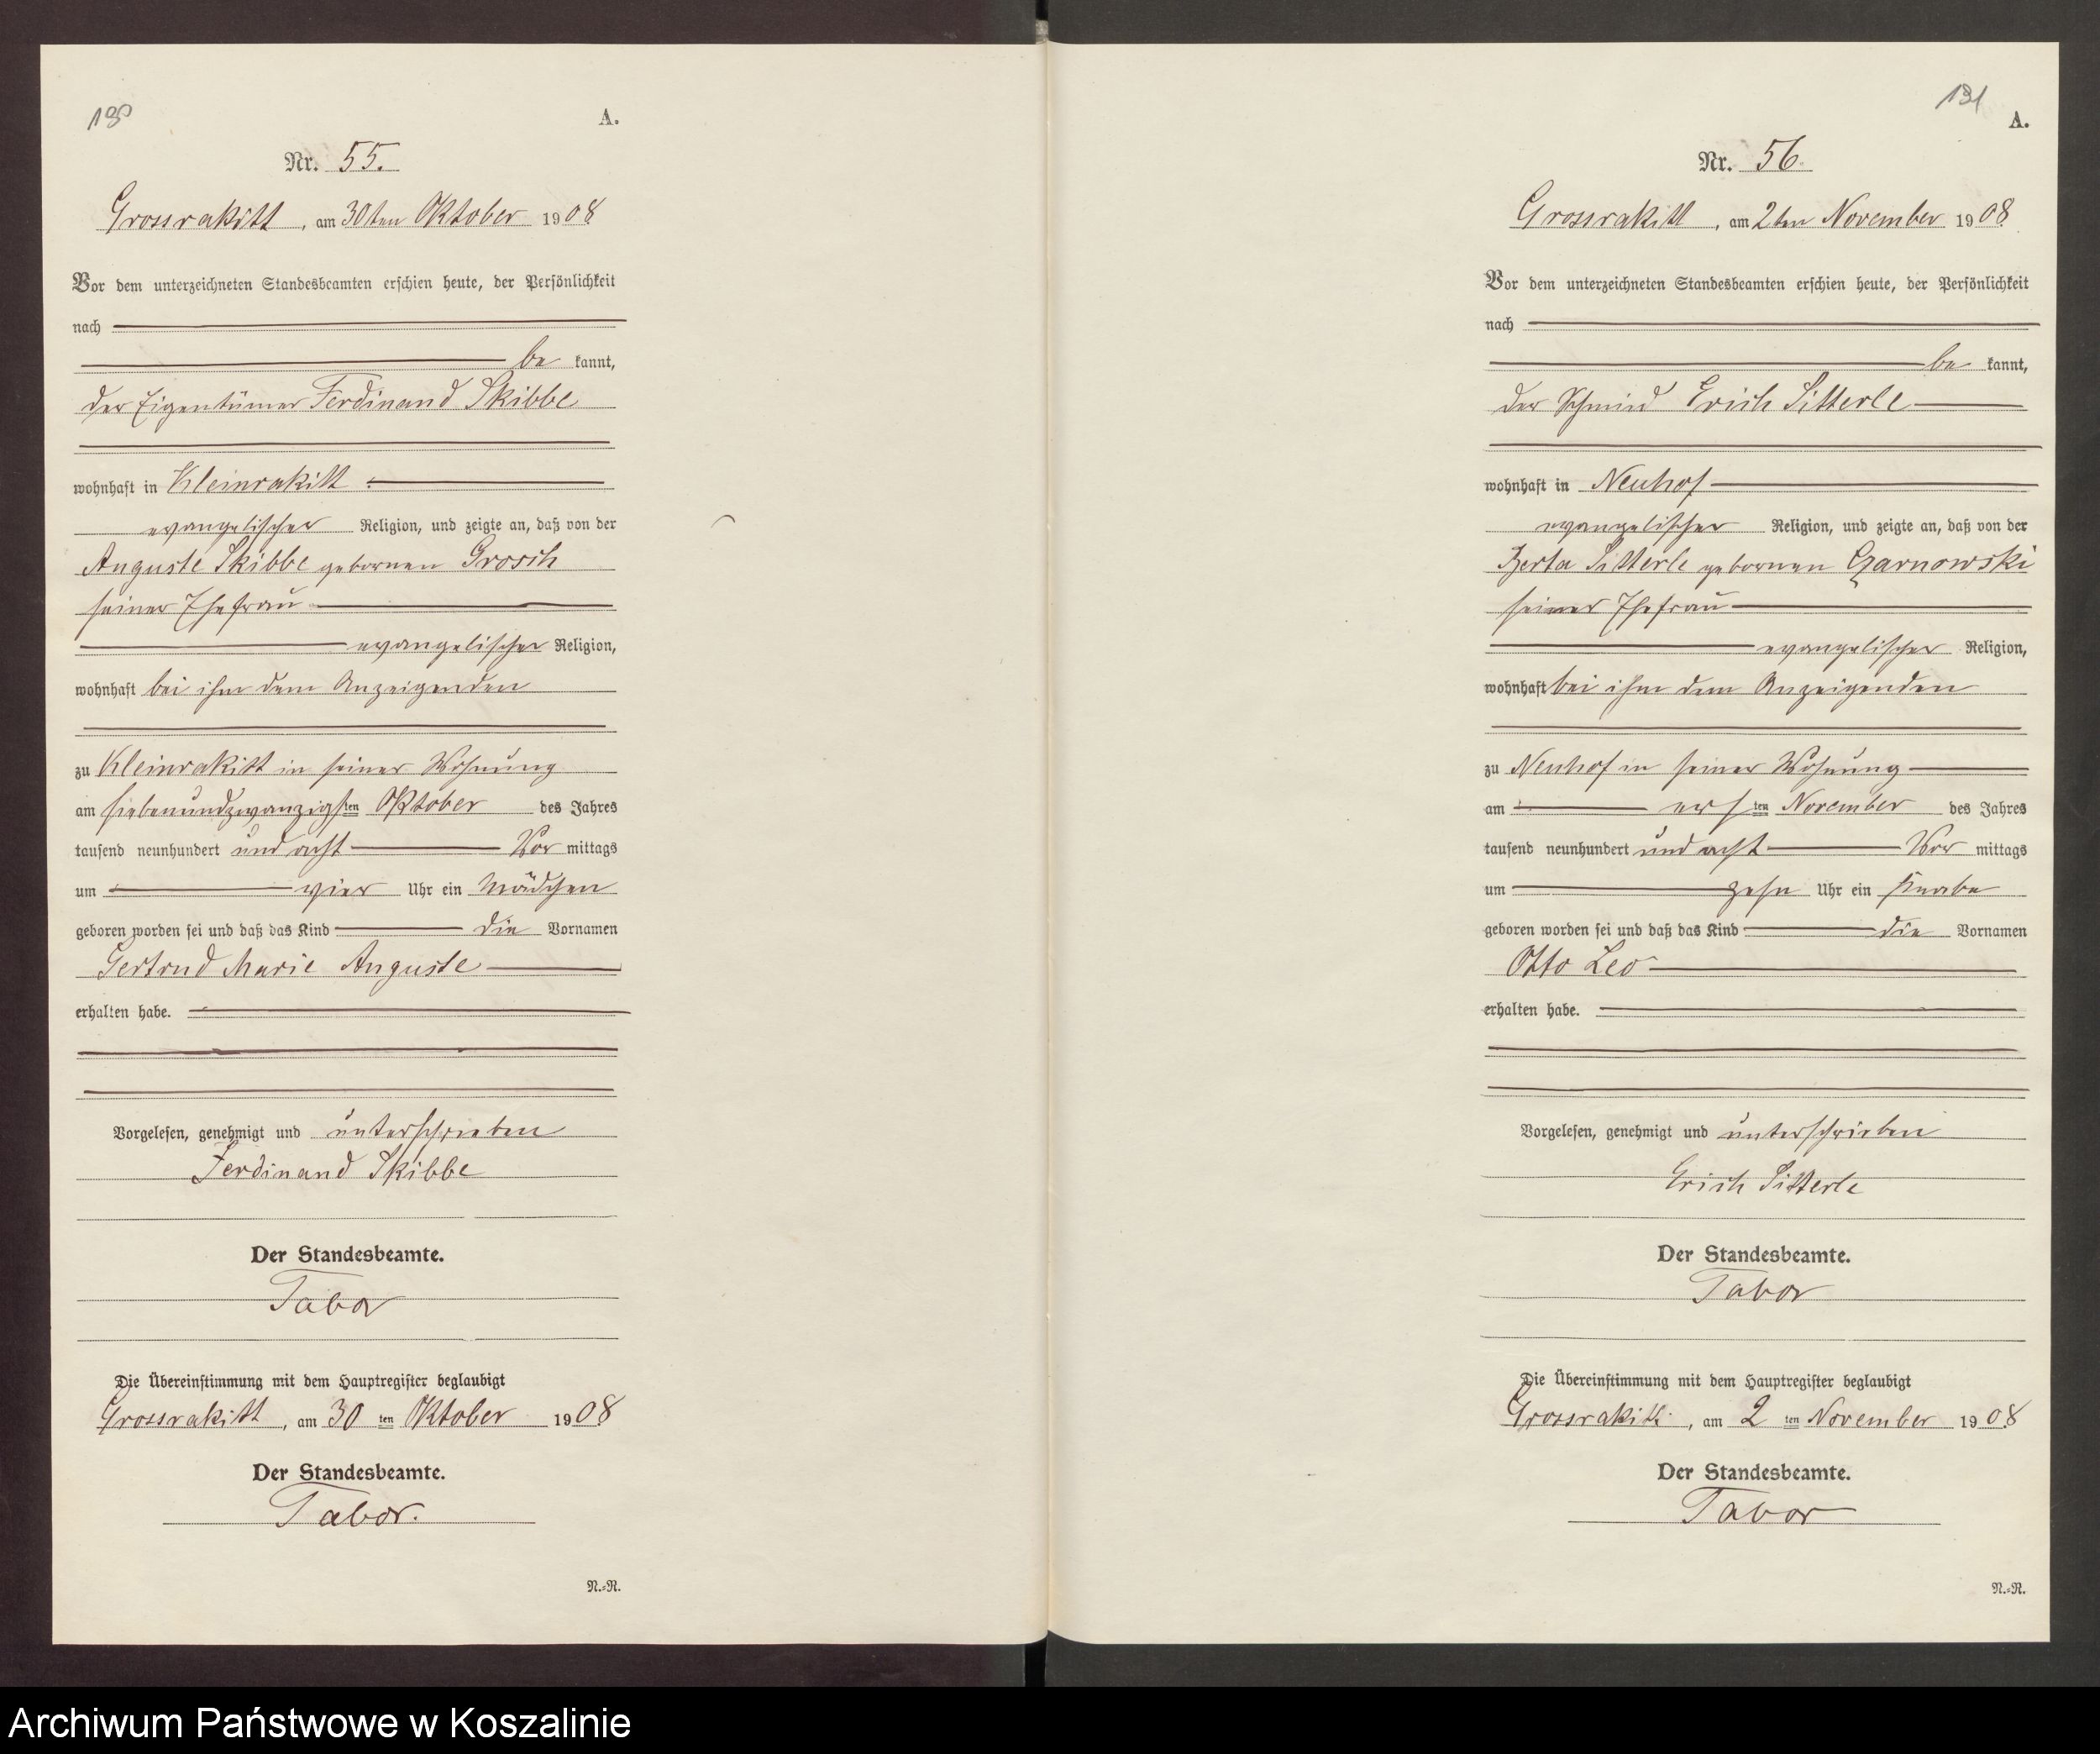 130
A.
Nr. 55.
Grossrakitt, am 30ten Oktober 1908.
Vor dem unterzeichneten Standesbeamten erschien heute, der Persönlichkeit
nach
be kannt,
der Eigentümer Ferdinand Skibbe
wohnhaft in Kleinrakitt
evangelischer Religion, und zeigte an, daß von der
Auguste Skibbe gebornen Grosch
seiner Ehefrau
evangelischer Religion,
wohnhaft bei ihm dem Anzeigenden
zu Kleinrakitt in seiner Wohnung
am siebenundzwanzigsten Oktober des Jahres
tausend neunhundert und acht Vor mittags
um vier Uhr ein Mädchen
geboren worden sei und daß das Kind die Vornamen
Gertrud Marie Auguste
erhalten habe.
Vorgelesen, genehmigt und unterschrieben
Ferdinand Skibbe
Der Standesbeamte.
Tabor
Die Übereinstimmung mit dem Hauptregister beglaubigt
Grossrakitt, am 30 ten Oktober 1908
Der Standesbeamte.
Tabor.
N.=R.
131
A.
Nr. 56.
Grossrakitt, am 2ten November 1908.
Vor dem unterzeichneten Standesbeamten erschien heute, der Persönlichkeit
nach
be kannt,
der Schmied Erich Sitterle
wohnhaft in Neuhof
evangelischer Religion, und zeigte an, daß von der
Berta Sitterle gebornen Czarnowski
seiner Ehefrau
evangelischer Religion,
wohnhaft bei ihm dem Anzeigenden
zu Neuhof in seiner Wohnung
am ersten November des Jahres
tausend neunhundert und acht Vor mittags
um zehn Uhr ein Knabe
geboren worden sei und daß das Kind die Vornamen
Otto Leo
erhalten habe.
Vorgelesen, genehmigt und unterschrieben
Erich Sitterle
Der Standesbeamte.
Tabor
Die Übereinstimmung mit dem Hauptregister beglaubigt
Grossrakitt, am 2 ten November 1908.
Der Standesbeamte.
Tabor
N.=R.
Archiwum Państwowe w Koszalinie